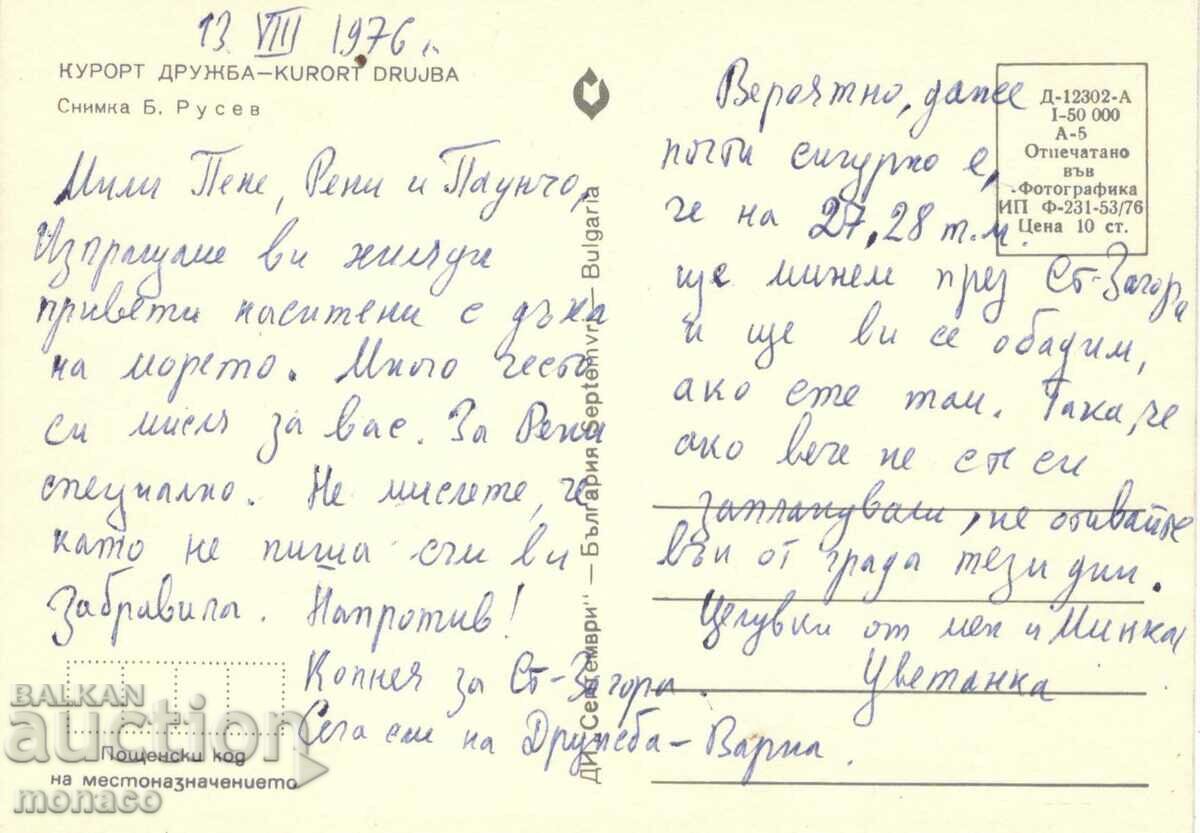 13 VIII 1976 г.
КУРОРТ ДРУЖБА—KURORT DRUJBA
Снимка Б. Русев
Мили Пене, Рени и Паунчо,
Изпращаме ви хиляди
привети наситени с дъха
на морето. Много често
си мисля за вас. За Рени
специално. Не мислете, че
като не пиша съм ви
забравила. Напротив!
Копнея за Ст-Загора.
Сега съм на Дружба - Варна.
Пощенски код
на местоназначението
ДИ „Септември" — България Septemvri — Bulgaria
Д-12302-А
I-50 000
А-5
Отпечатано
във
Фотографика
ИП Ф-231-53/76
Цена 10 ст.
Вероятно, даже
почти сигурно е,
че на 27, 28 т.м.
ще минем през Ст-Загора
и ще ви се обадим,
ако сте там. Така, че
ако вече не сте си
запланували, не отивайте
вън от града тези дни.
Целувки от мен и Минка
Цветанка
BALKAN
auction
monaco